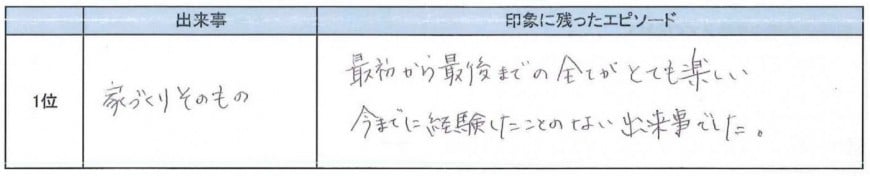 出来事 印象に残ったエピソード
1位 家づくりそのもの
最初から最後までの全てがとても楽しい
今までに経験したことのない出来事でした。